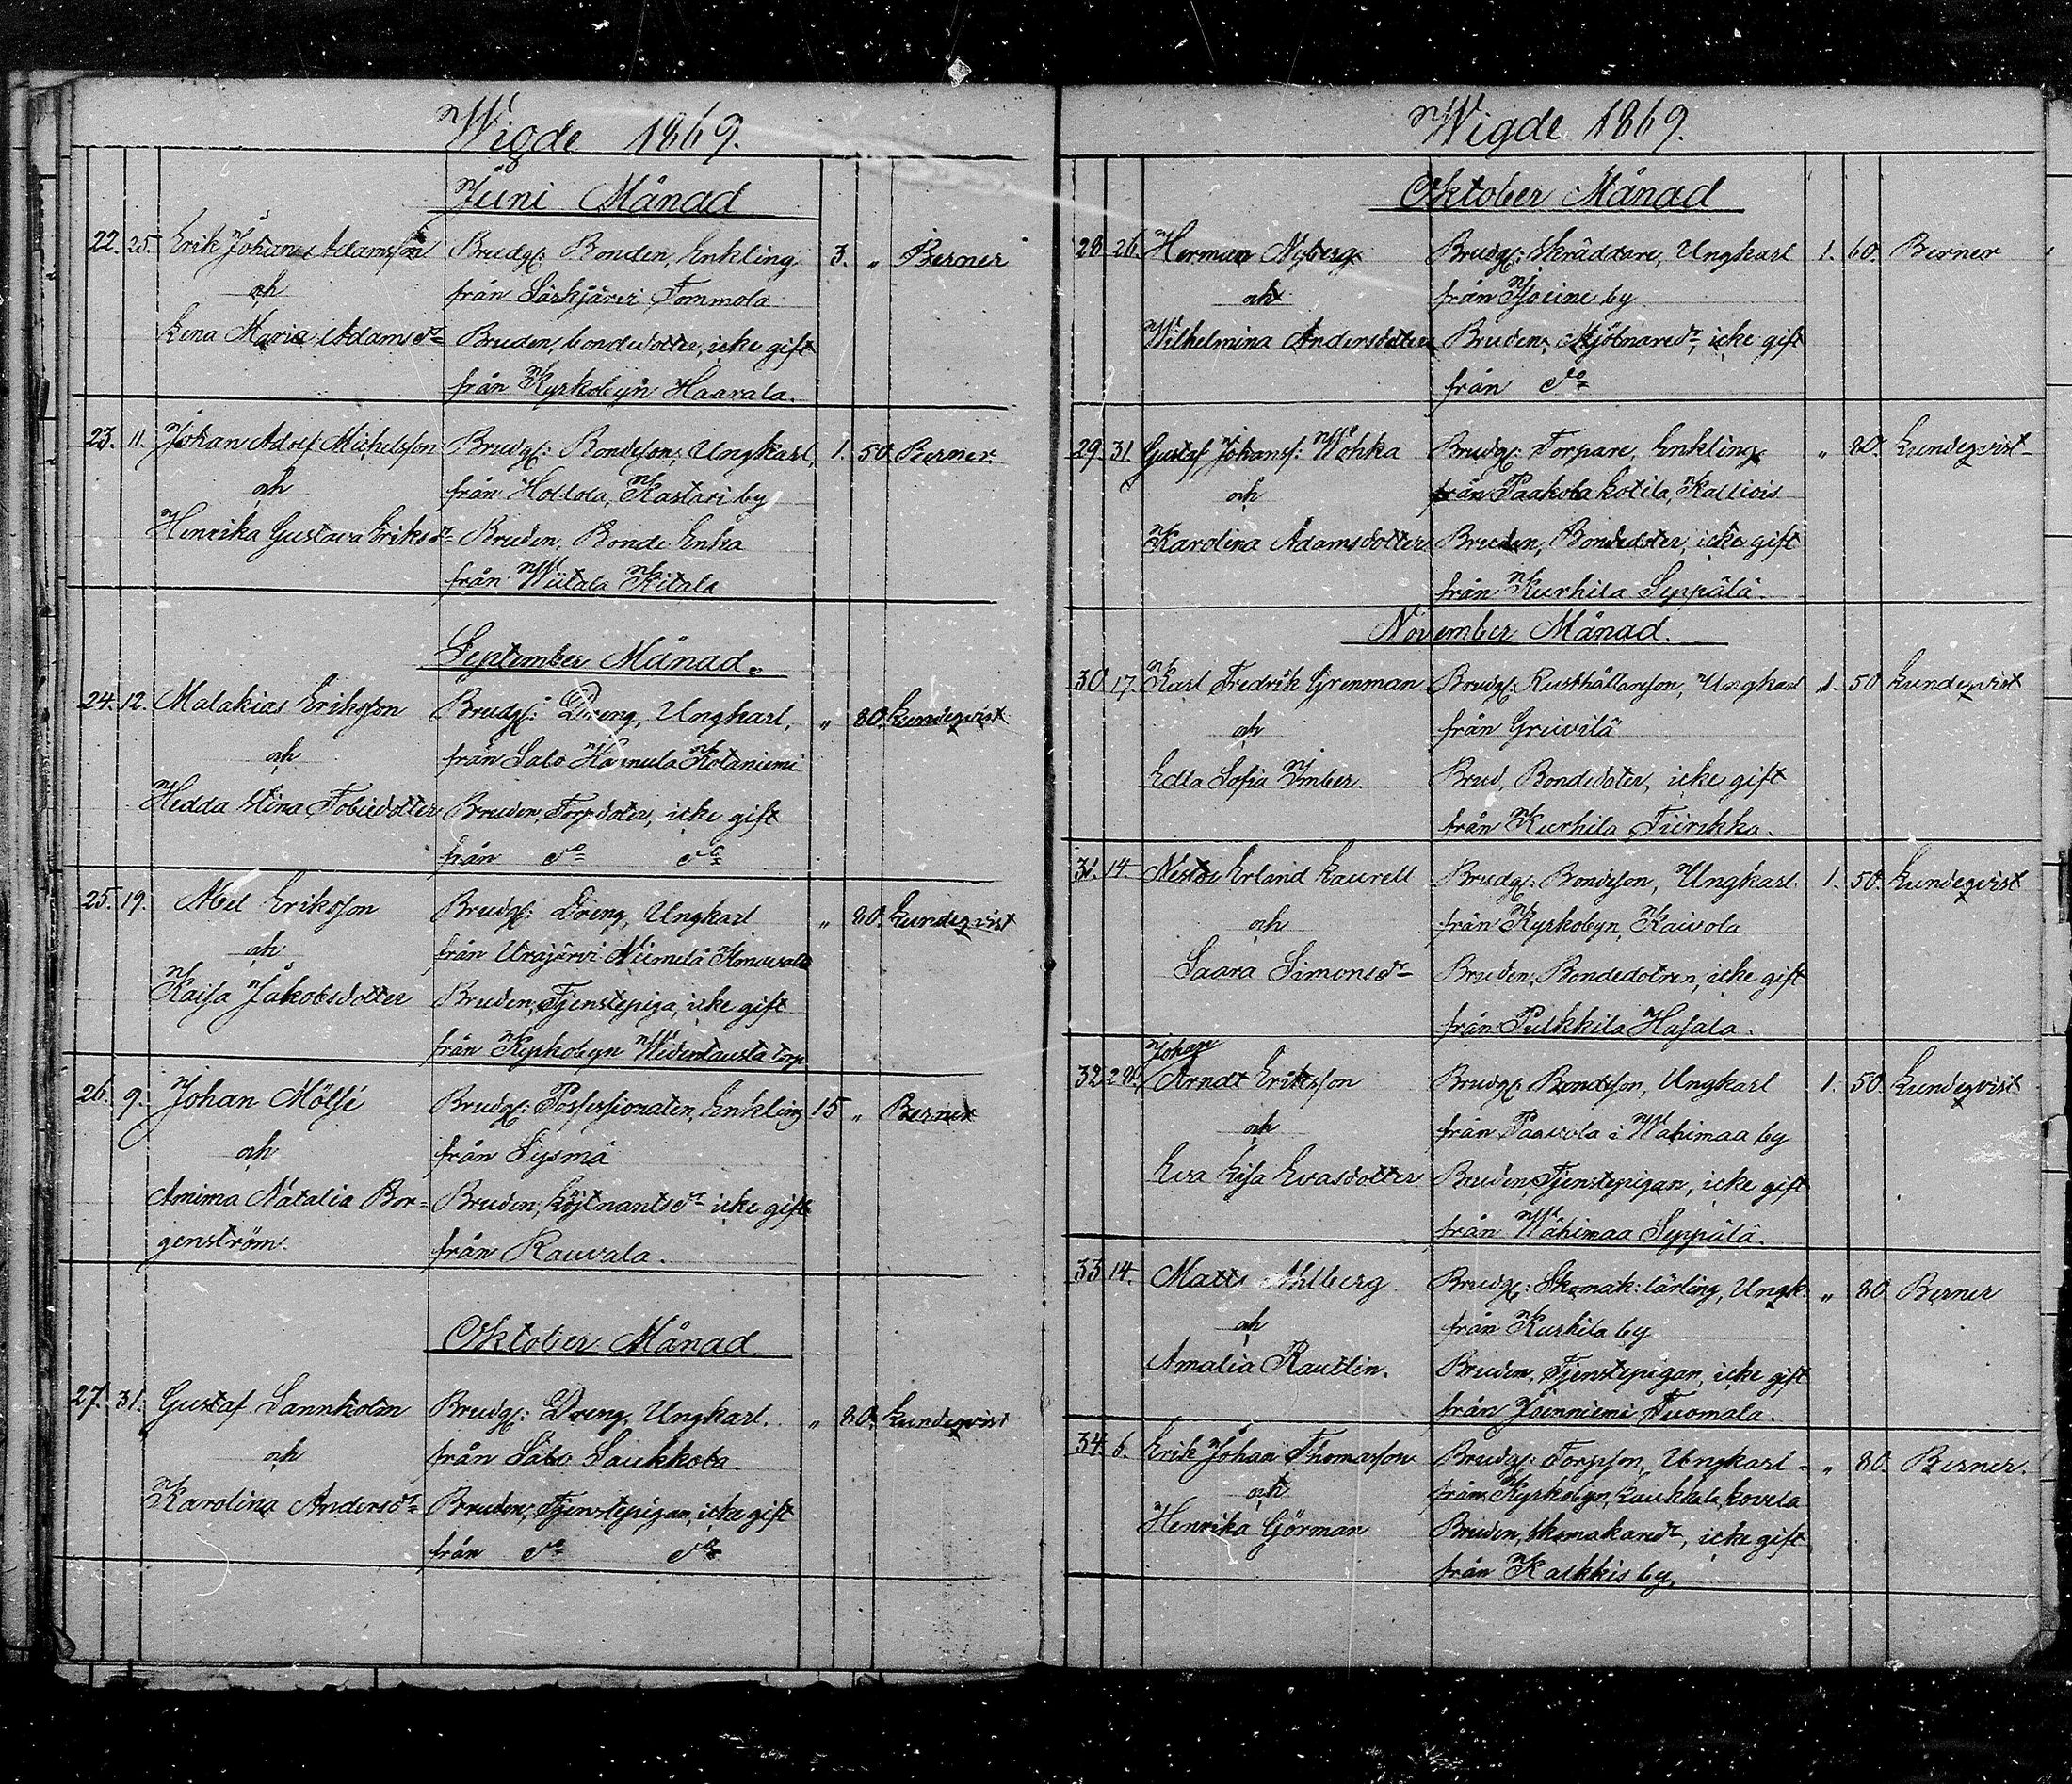 Wigde 1869.
Juni Månad
22. 25. Erik Johan Adamsson Brudg: Bonden, Enkling 3. „ Berner
och från Särkjärvi Tommola
Lena Maria Adamsdr Bruden, bondedotter, icke gift
från Kyrkobyn Haavala.
23. 11. Johan Adolf Michelsson Brudg: Bondeson, Ungkarl, 1. 50. Berner.
och från Hollola, Kastari by
Henrika Gustava Eriksdr Bruden, Bonde Enka
från Wiitala Kitala
September Månad.
24. 12. Malakias Eriksson Brudg: Dreng, Ungkarl, „ 80. Lundeqvist
och från Salo Hannula Kotaniemi
Hedda Stina Tobiedotter Bruden, Torpdoter, icke gift
från do do
25. 19. Abel Eriksson Brudg: Dreng, Ungkarl „ 80. Lundeqvist
och från Urajärvi Niemelä
Kaisa Jakobsdotter Bruden, Tjenstepiga, icke gift
från Kyrkobyn torp
26. 9. Johan Mölsi Brudg: Possessionaten, Enkling 15 „ Berner
och från Sysmä
Amima Natalia Bor= Bruden, Löjtnantsdr icke gift
genström. från Rauvala.
Oktober Månad.
27. 31. Gustaf Sannholm Brudg: Dreng, Ungkarl. „ 80. Lundeqvist
och från Salo Saukkola
Karolina Andersdr Bruden, Tjenstepigan, icke gift
från do do
Wigde 1869.
Oktober Månad
28 26. Herman Nyberg. Brudg: Skräddare, Ungkarl 1. 60. Berner
och från by
Wilhelmina Andersdotter Bruden, Mjölnaredr, icke gift
från do
29. 31. Gustaf Johanss: Wähkä Brudg: Torpare, Enkling „ 80. Lundeqvist
och från Paakola Kotila, Kalliois
Karolina Adamsdotter Bruden, Bondedoter, icke gift
från Kurhila Seppälä.
November Månad.
30. 17. Karl Fredrik Grenman Brudg: Rusthållarson, Ungkarl 1. 50 Lundeqvist
och från
Edla Sofia Imber. Brud, Bondedoter, icke gift
från Kurhila Tiirikka.
31. 14. Nestor Erland Laurell Brudg: Bondeson, Ungkarl. 1. 50. Lundeqvist
och från Kyrkobyn, Kaivola
Saara Simonsdr Bruden, Bondedotren, icke gift
från Pulkkila Hasala.
Johan
32 28. Arndt Eriksson Brudg: Bondeson, Ungkarl 1. 50. Lundeqvist
och från Paavola i Wähimaa by
Eva Lisa Evasdotter Bruden, Tjenstepigan, icke gift
från Wähimaa Seppälä.
33 14. Matts Ahlberg Brudg: Skomak: lärling, Ungk. „ 80. Berner
och från Kurhila by
Amalia Rautlin. Bruden, Tjenstepigan, icke gift
från Isenniemi Tuomala.
34. 6. Erik Johan Thomasson Brudg: Torpson, Ungkarl „ 80. Berner.
och från Kyrkobyn, Laukkala, Kovela
Henrika Görman Bruden, Skomakaredr, icke gift
från Kalkkis by,